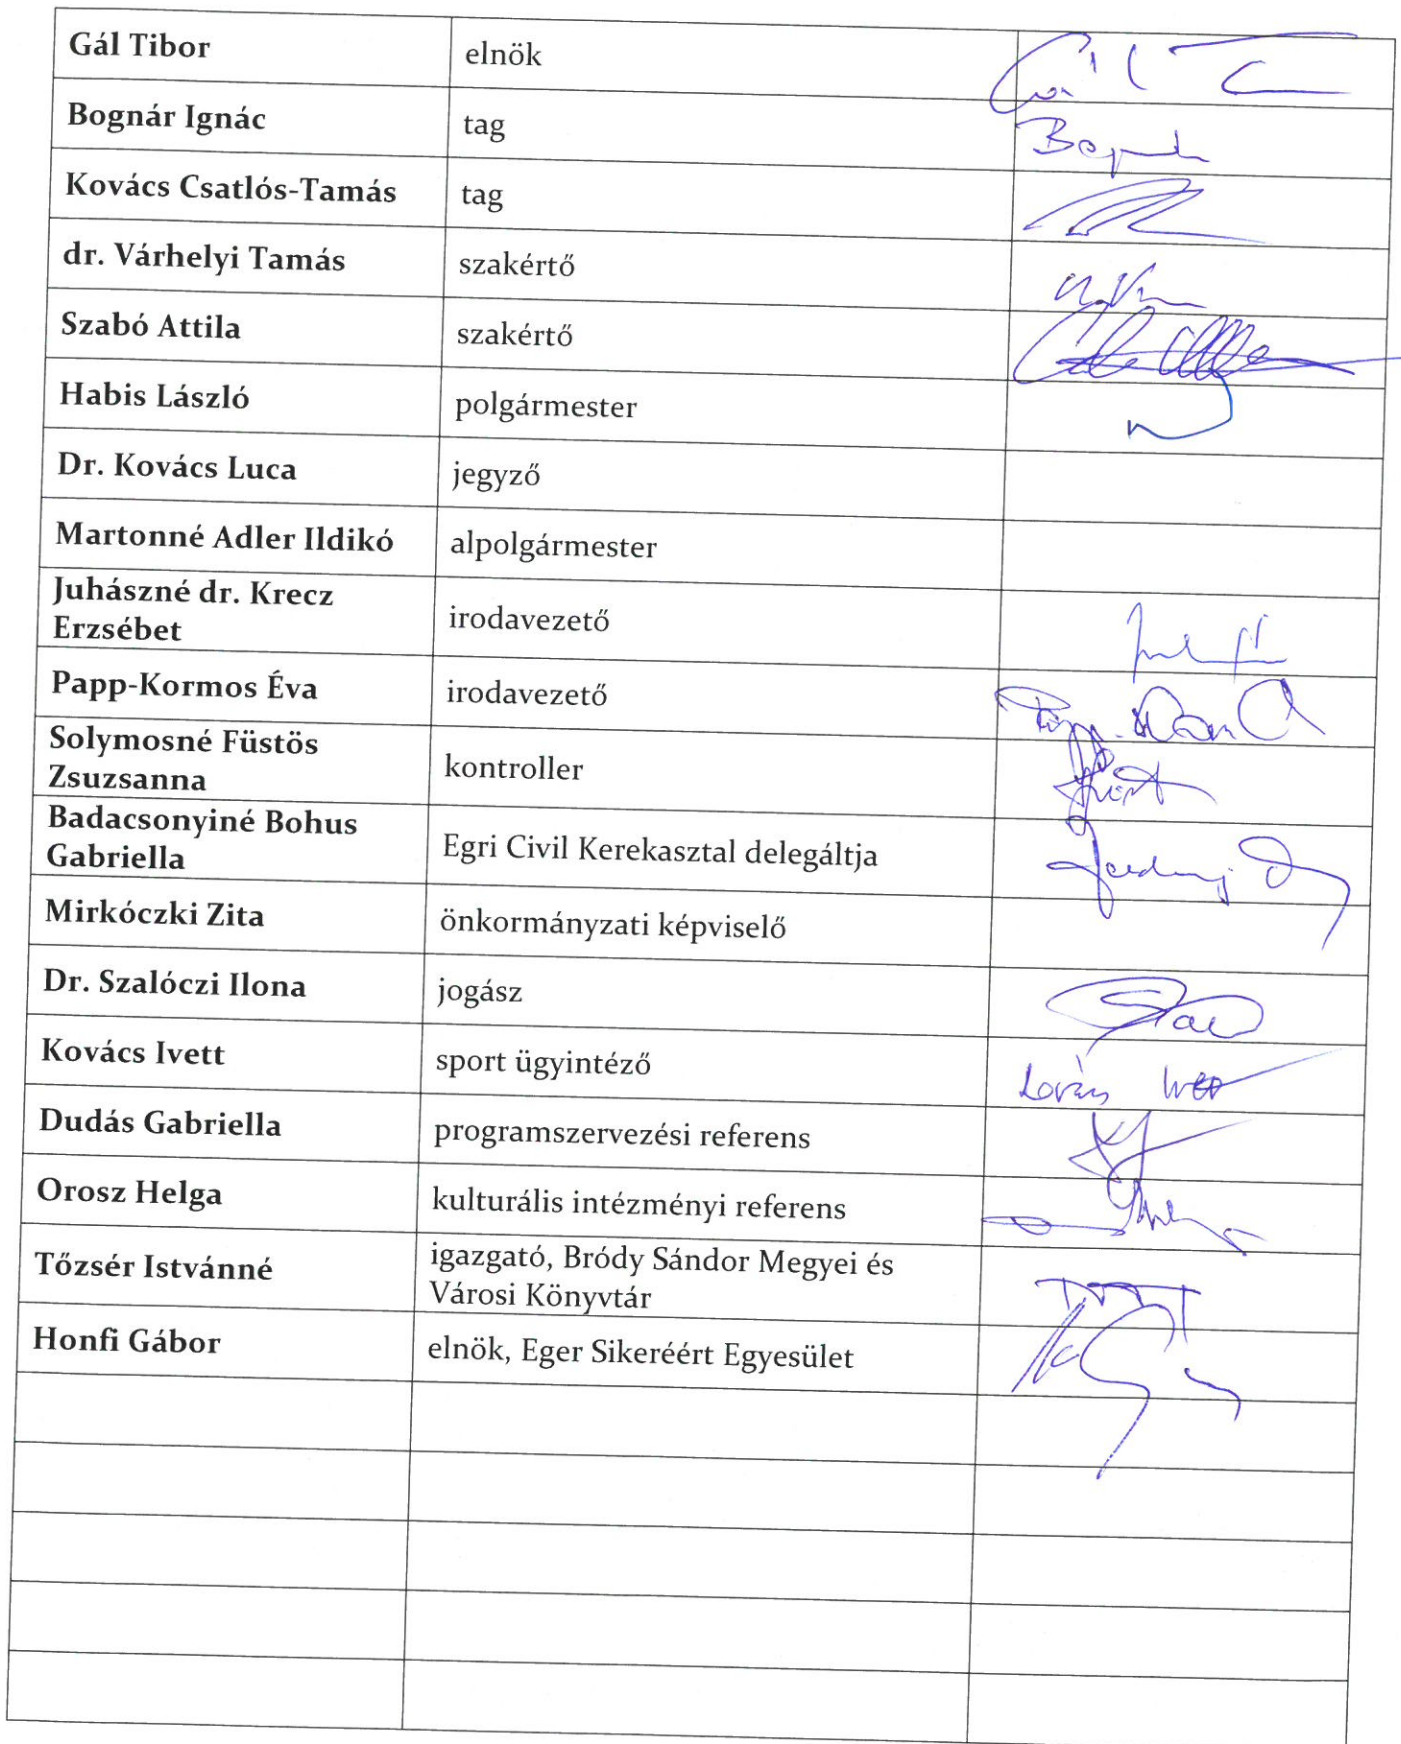 Gál Tibor elnök
Bognár Ignác tag
Kovács Csatlós-Tamás tag
dr. Várhelyi Tamás szakértő
Szabó Attila szakértő
Habis László polgármester
Dr. Kovács Luca jegyző
Martonné Adler Ildikó alpolgármester
Juhászné dr. Krecz
Erzsébet irodavezető
Papp-Kormos Éva irodavezető
Solymosné Füstös
Zsuzsanna kontroller
Badacsonyiné Bohus
Gabriella Egri Civil Kerekasztal delegáltja
Mirkóczki Zita önkormányzati képviselő
Dr. Szalóczi Ilona jogász
Kovács Ivett sport ügyintéző
Dudás Gabriella programszervezési referens
Orosz Helga kulturális intézményi referens
Tőzsér Istvánné igazgató, Bródy Sándor Megyei és
Városi Könyvtár
Honfi Gábor elnök, Eger Sikeréért Egyesület